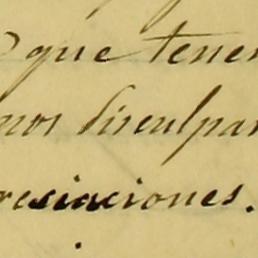 que tener
nos disculpar
reciaciones.